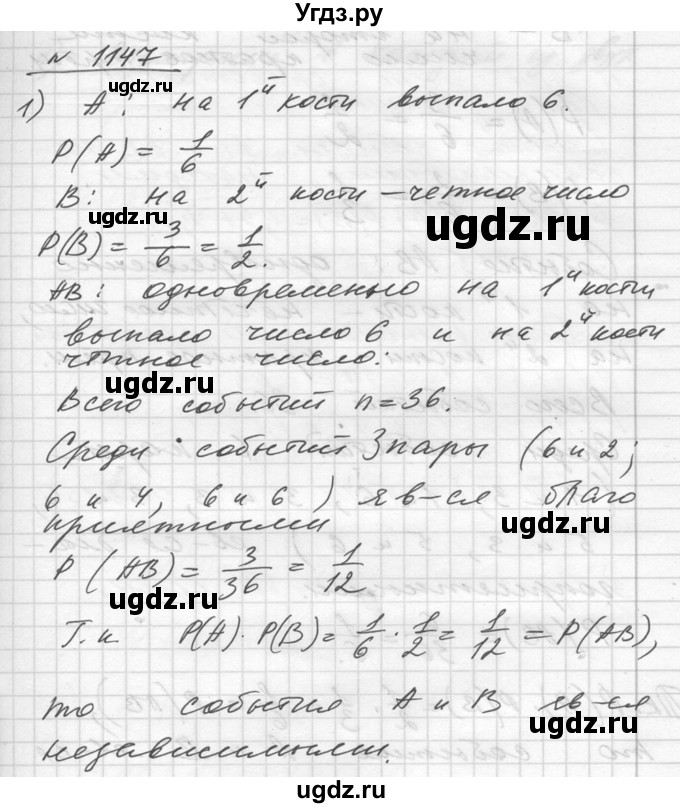 Угдз.ру
№ 1147
1) А: на 1й кости выпало 6.
P(A) = 1/6
В: на 2й кости – четное число
P(B) = 3/6 = 1/2.
АВ: одновременно на 1й кости
выпало число 6 и на 2й кости
четное число.
Всего событий n = 36.
Среди событий 3 пары (6 и 2;
6 и 4, 6 и 6) яв-ся благо
приятными
P(AB) = 3/36 = 1/12
Т.к P(A)·P(B) = 1/6 · 1/2 = 1/12 = P(AB),
то события А и В яв-ся
независимыми.
ugdz.ru
ugdz.ru
ugdz.ru
ugdz.ru
ugdz.ru
ugdz.ru
ugdz.ru
ugdz.ru
ugdz.ru
ugdz.ru